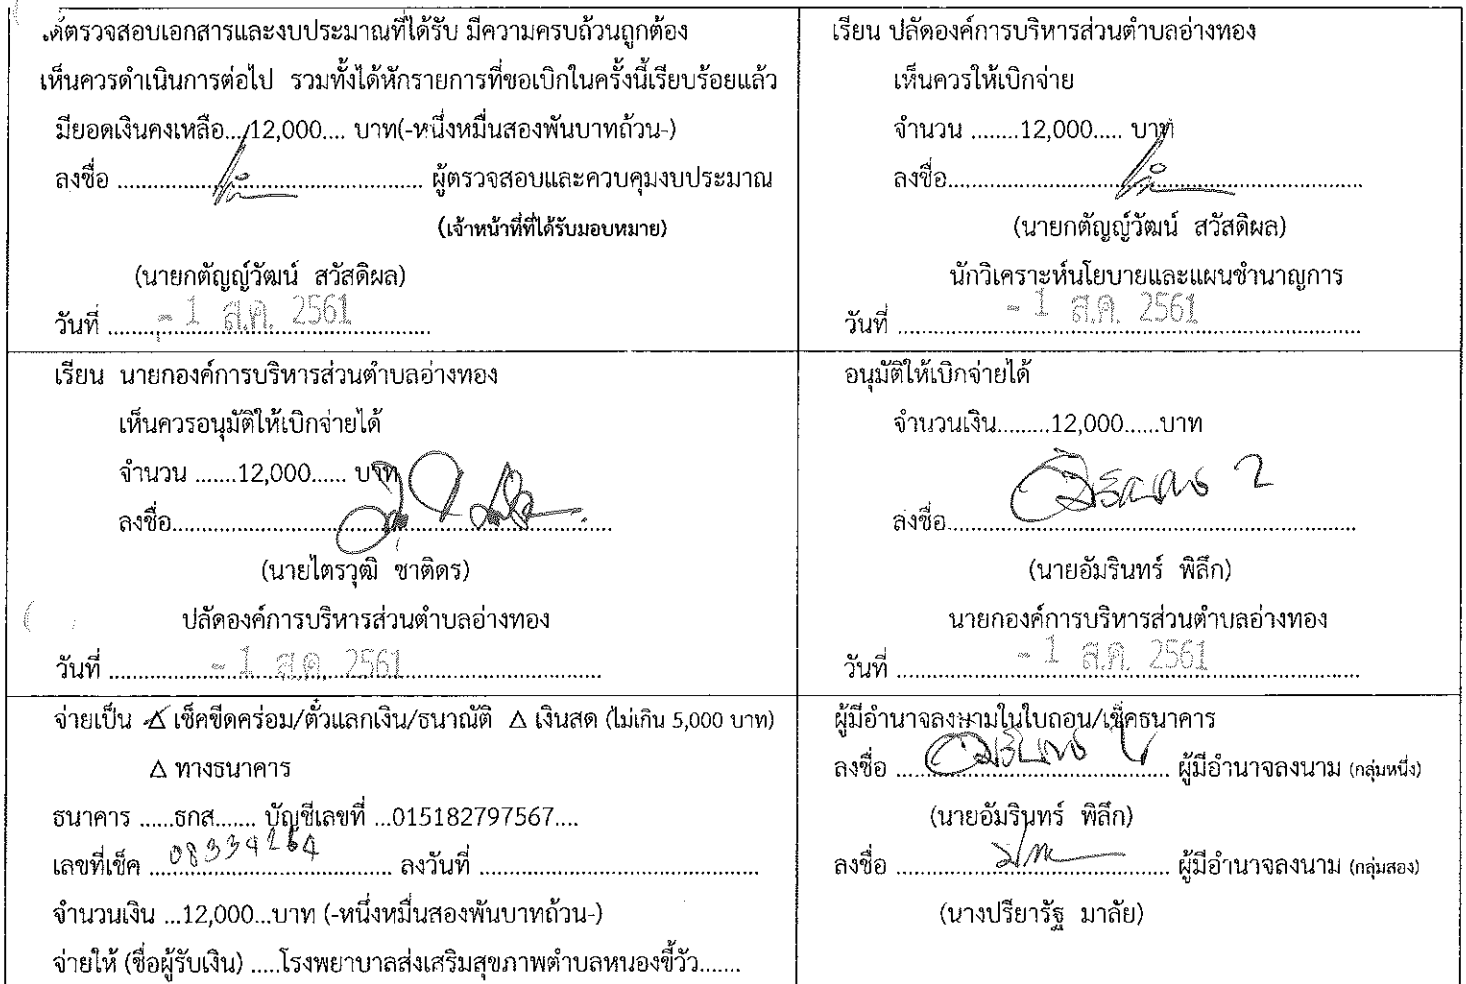 ตรวจสอบเอกสารและงบประมาณที่ได้รับ มีความครบถ้วนถูกต้อง
เห็นควรดำเนินการต่อไป รวมทั้งได้หักรายการที่ขอเบิกในครั้งนี้เรียบร้อยแล้ว
มียอดเงินคงเหลือ....12,000.... บาท(-หนึ่งหมื่นสองพันบาทถ้วน-)
ลงชื่อ ........ ผู้ตรวจสอบและควบคุมงบประมาณ
(เจ้าหน้าที่ที่ได้รับมอบหมาย)
(นายกตัญญ์วัฒน์ สวัสดิผล)
วันที่ - 1 ส.ค. 2561
เรียน ปลัดองค์การบริหารส่วนตำบลอ่างทอง
เห็นควรให้เบิกจ่าย
จำนวน ........12,000..... บาท
ลงชื่อ........
(นายกตัญญ์วัฒน์ สวัสดิผล)
นักวิเคราะห์นโยบายและแผนชำนาญการ
วันที่ - 1 ส.ค. 2561
เรียน นายกองค์การบริหารส่วนตำบลอ่างทอง
เห็นควรอนุมัติให้เบิกจ่ายได้
จำนวน .......12,000...... บาท
ลงชื่อ........
(นายไตรวุฒิ ชาติดร)
ปลัดองค์การบริหารส่วนตำบลอ่างทอง
วันที่ - 1 ส.ค. 2561
อนุมัติให้เบิกจ่ายได้
จำนวนเงิน.........12,000......บาท
ลงชื่อ........
(นายอัมรินทร์ พิลึก)
นายกองค์การบริหารส่วนตำบลอ่างทอง
วันที่ - 1 ส.ค. 2561
จ่ายเป็น Δ เช็คขีดคร่อม/ตั๋วแลกเงิน/ธนาณัติ Δ เงินสด (ไม่เกิน 5,000 บาท)
Δ ทางธนาคาร
ธนาคาร ......ธกส....... บัญชีเลขที่ ...015182797567....
เลขที่เช็ค 08334264 ลงวันที่ ........
จำนวนเงิน ...12,000...บาท (-หนึ่งหมื่นสองพันบาทถ้วน-)
จ่ายให้ (ชื่อผู้รับเงิน) .....โรงพยาบาลส่งเสริมสุขภาพตำบลหนองขี้วัว.......
ผู้มีอำนาจลงนามในใบถอน/เช็คธนาคาร
ลงชื่อ ........ ผู้มีอำนาจลงนาม (กลุ่มหนึ่ง)
(นายอัมรินทร์ พิลึก)
ลงชื่อ ........ ผู้มีอำนาจลงนาม (กลุ่มสอง)
(นางปรียารัฐ มาลัย)